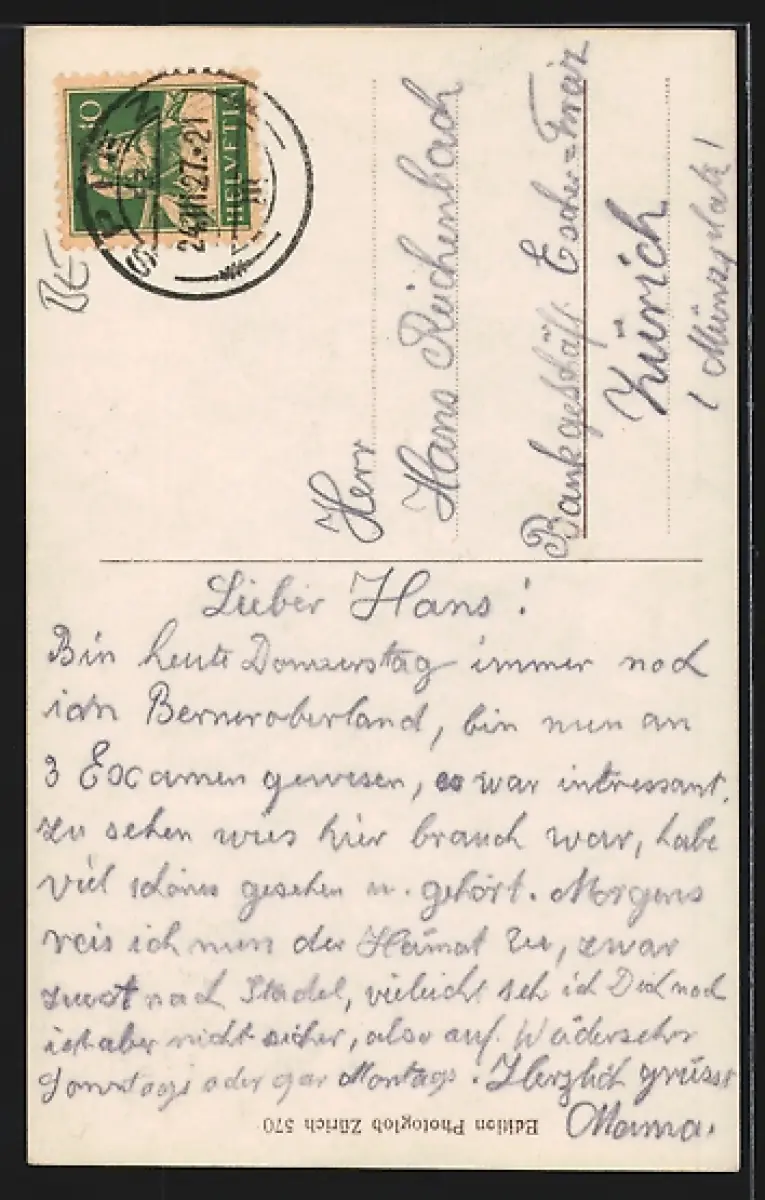 10
HELVETIA
SPIEZ
24.III.27.-21
BE
Herr
Hans Reichenbach
Bankgeschäft Escher=Freiz
Zürich
(Münzplatz)
Lieber Hans!
Bin heute Donnerstag immer noch
im Berneroberland, bin nun an
3 Examen gewesen, es war intressant,
zu sehen wies hier brauch war, habe
viel schönes gesehen u. gehört. Morgens
reis ich nun der Heimat zu, zwar
zuerst nach Stadel, vieleicht seh ich Dich noch
ist aber nicht sicher, also auf Wädersehn
Sonntags oder gar Montags. Herzlich grüsst
Mama.
Edition Photoglob Zürich 570